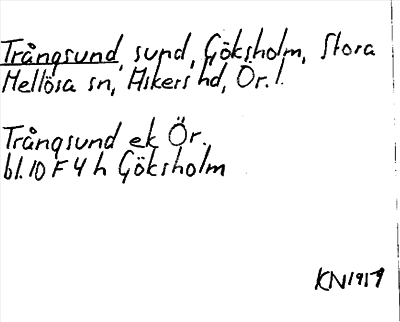 Trångsund, sund, Göksholm, Stora
Mellösa sn, Askers hd, Ör. l.
Trångsund ek Ör.
bl. 10 F 4 h Göksholm
KN 1917